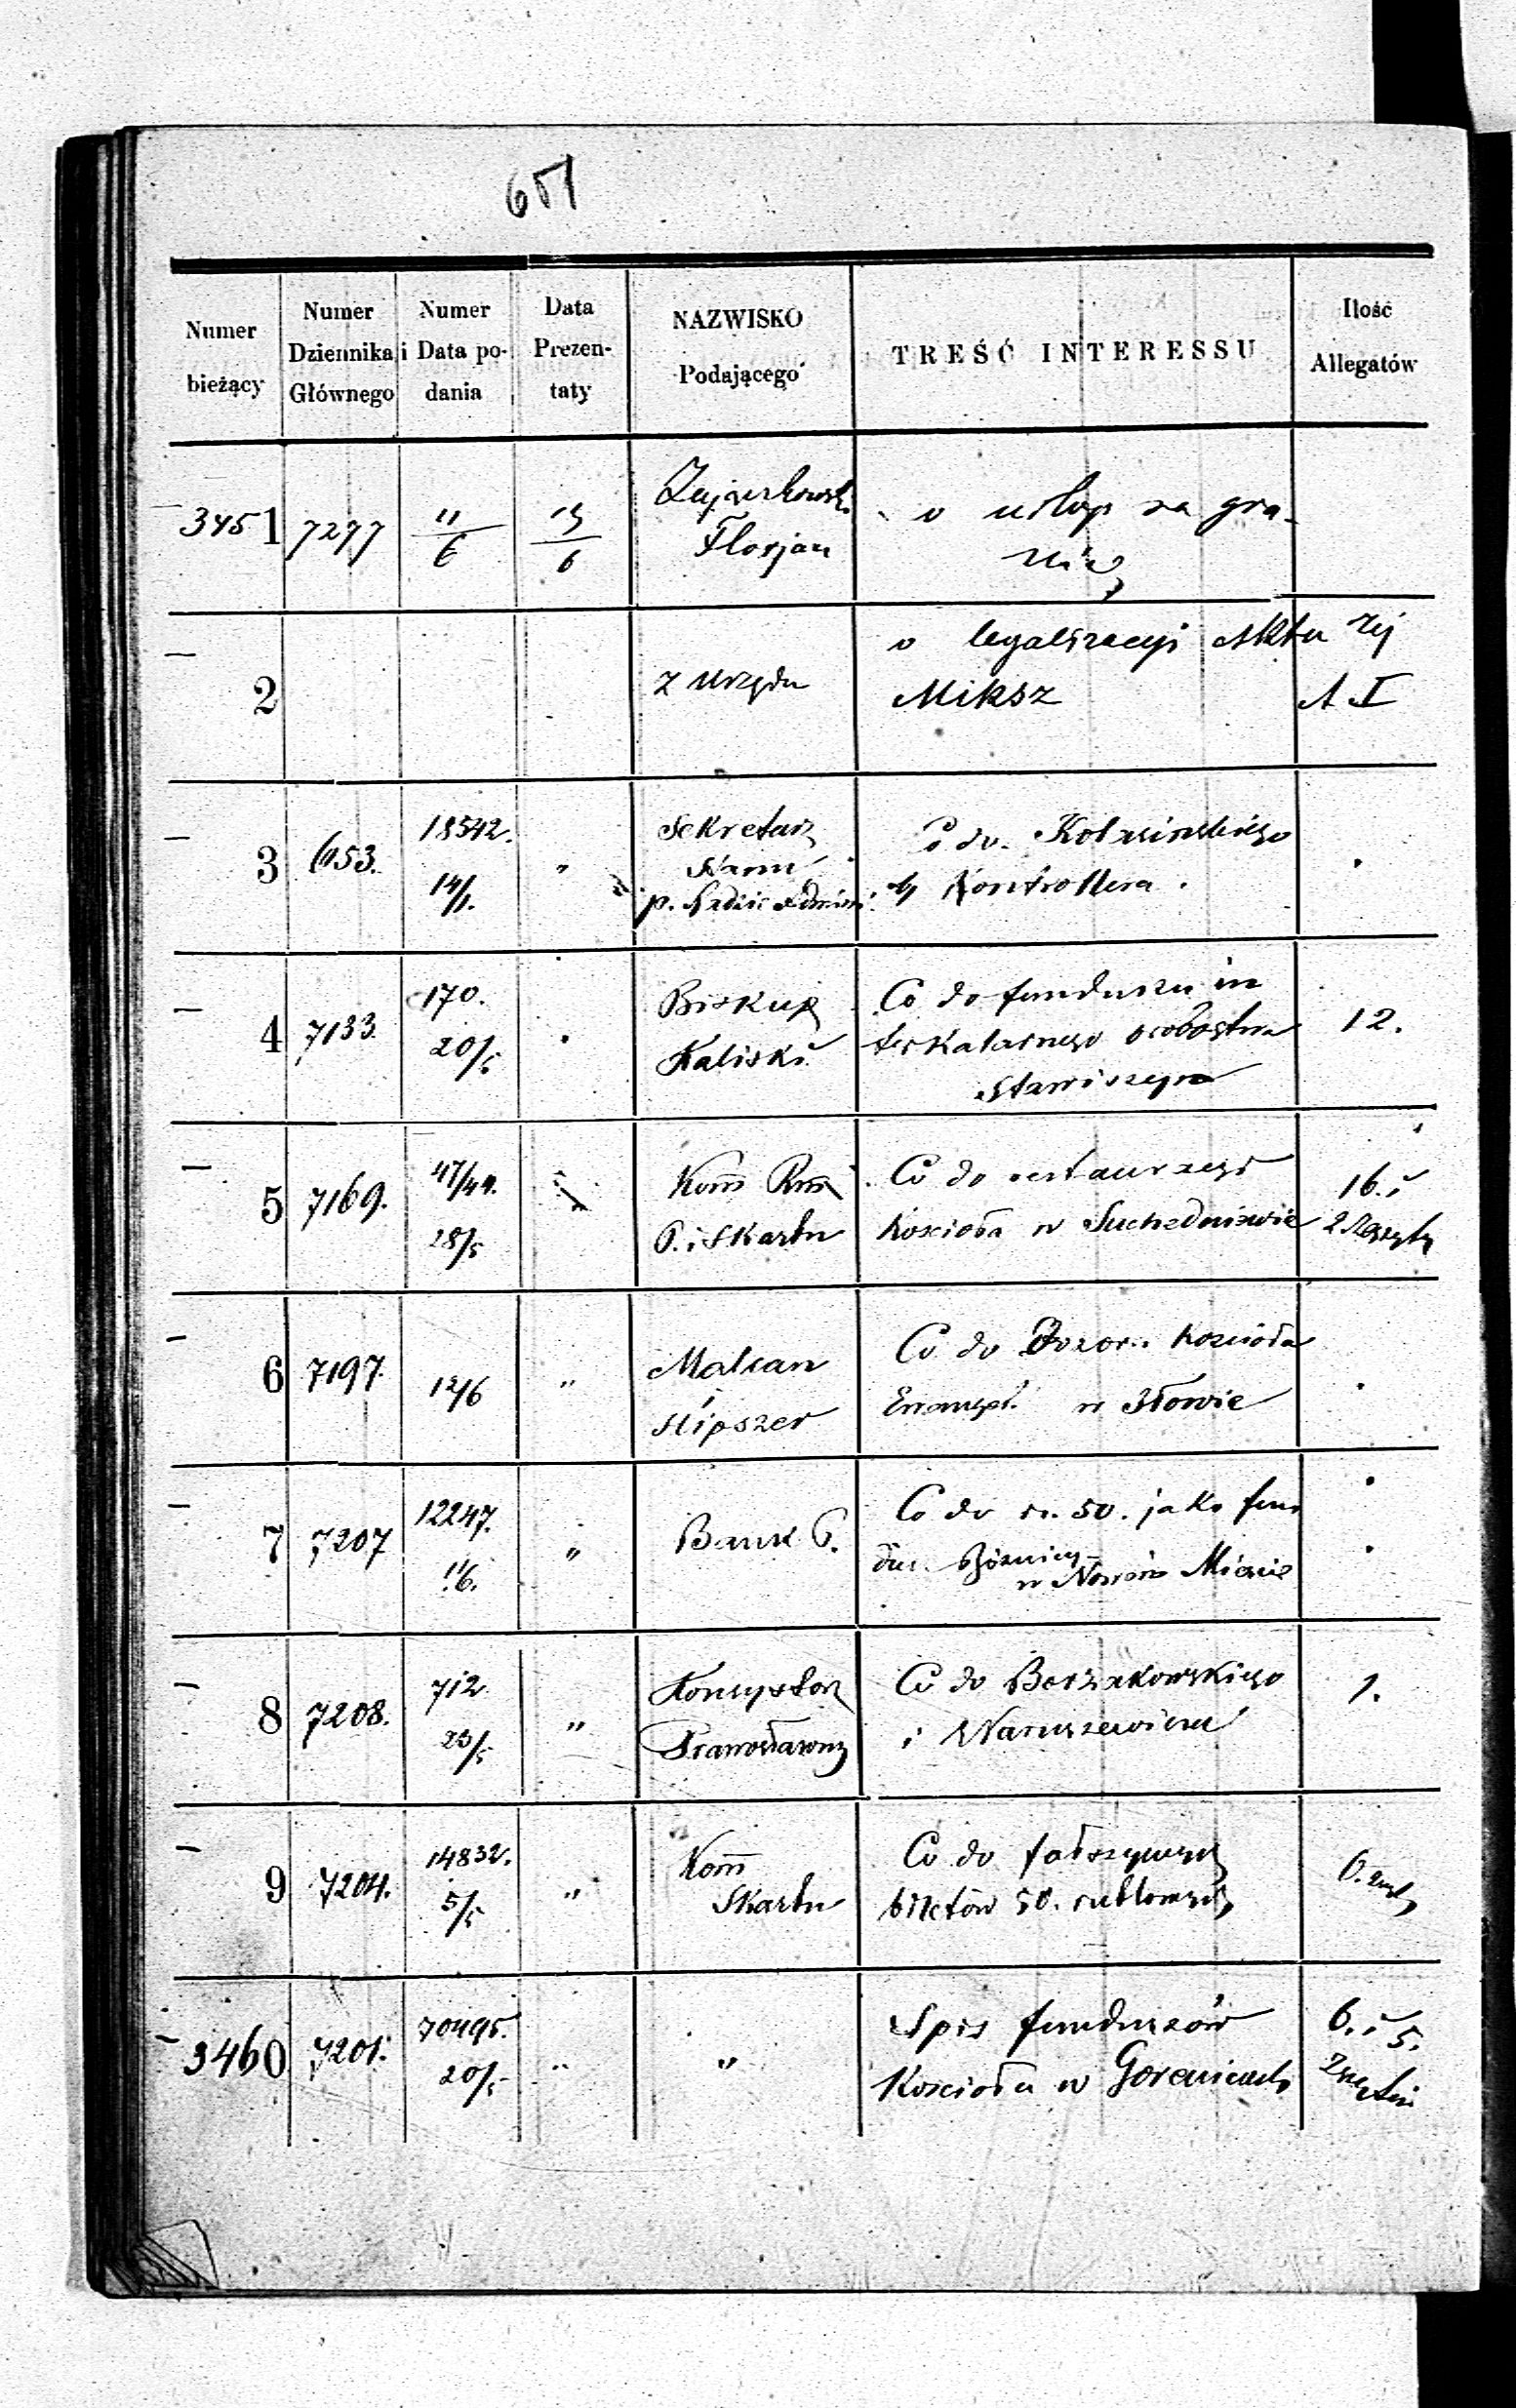 651
Numer bieżący
Numer Dziennika Głównego
Numer i Data podania
Data Prezentaty
NAZWISKO Podającego
TREŚĆ INTERESSU
Ilość Allegatów
3451 7277 11/6 13/6 Florjan o urlop za gra-
nicę
— 2 z urzędu o legalizacyi Aktu Zej
Miksz A I
— 3 653. 18542. Sekretarz Co do
14/1. " Stanu Kontrollera.
— 4 7133. 170. Biskup Co do funduszu in
20/5 Kaliski terkalarnego probostwa 12.
Stawiszyn
— 5 7169. 47/44. Kom Co do restauracyi 16. i
28/5 P. i Skarbu Kościoła w Suchedniowie 2 Zeszyty
— 6 7197. 12/6 " Malsan Co do Dozoru Kościoła
i Hipszer Ewangel. w
— 7 7207 12247. " Bank P. Co do rs. 50. jako fun
11/6. dusz Bóżnicy
w Nowem Mieście
— 8 7208. 712 " Konsystorz Co do Borzakowskiego 1.
23/5 Prawosławny i
— 9 7204. 14832. " Kom Co do fałszywych
5/5 Skarbu biletów 50. rublowych
— 3460 7201. 70495. " " Spis funduszów 6. i 5.
20/5 Kościoła w Gorenicach